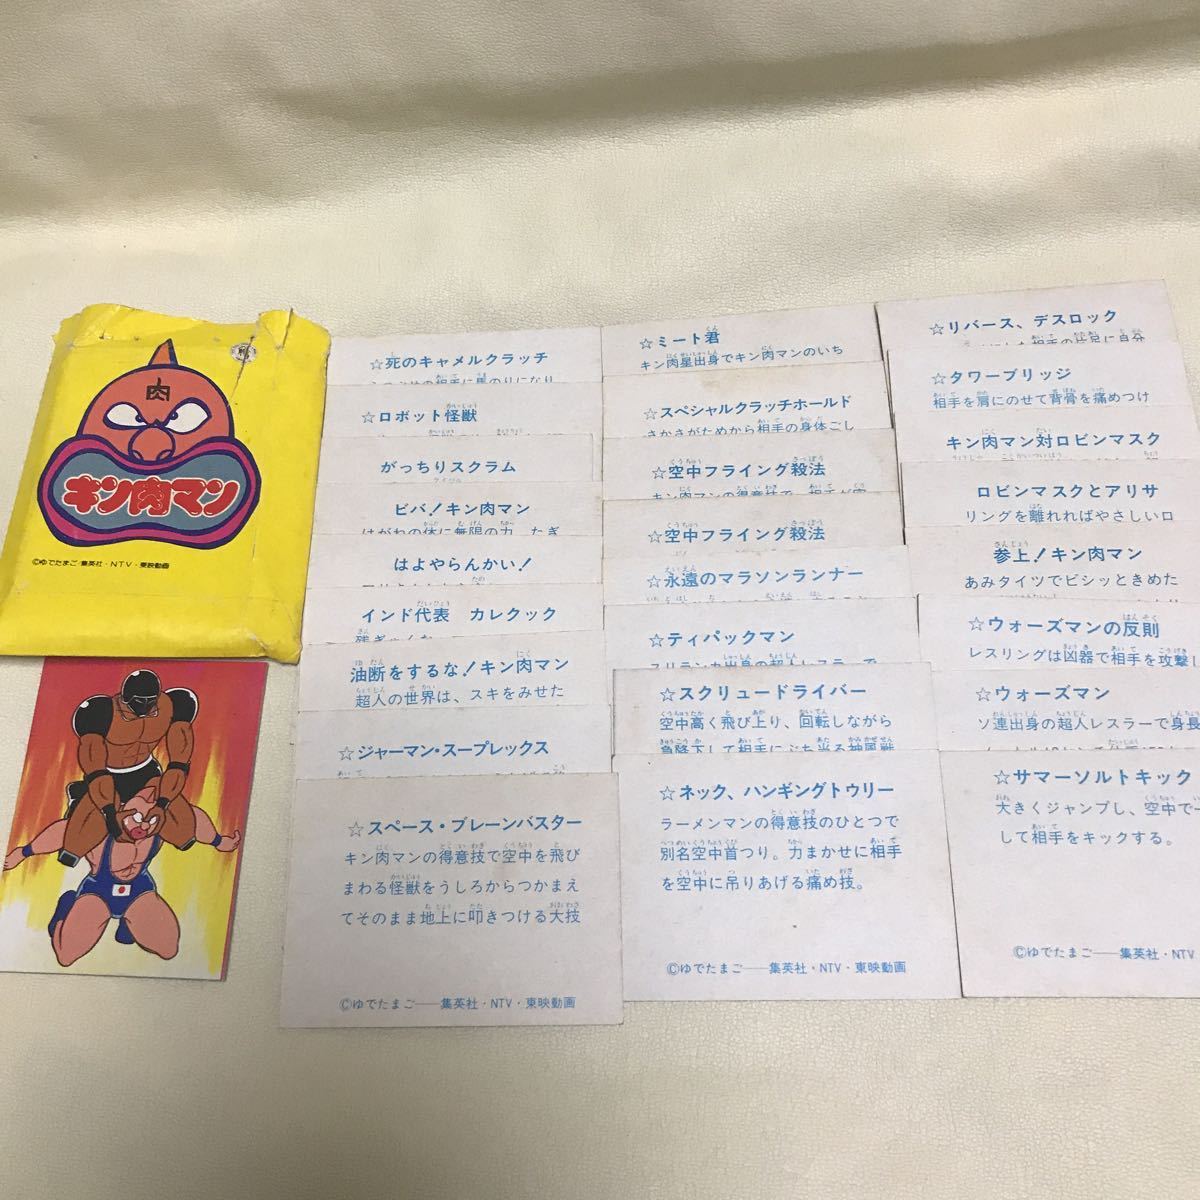 肉
キン肉マン
©ゆでたまご/集英社・NTV・東映動画
☆死のキャメルクラッチ
☆ロボット怪獣
がっちりスクラム
ビバ!キン肉マン
はがねの体に無限の力、たぎ
はよやらんかい!
インド代表 カレクック
残ぎゃくな
油断をするな!キン肉マン
超人の世界は、スキをみせた
☆ジャーマン・スープレックス
☆スペース・ブレーンバスター
キン肉マンの得意技で空中を飛び
まわる怪獣をうしろからつかまえ
てそのまま地上に叩きつける大技
©ゆでたまご──集英社・NTV・東映動画
☆ミート君
キン肉星出身でキン肉マンのいち
☆スペシャルクラッチホールド
さかさがためから相手の身体ごし
☆空中フライング殺法
キン肉マンの得意技で、相手が空
☆空中フライング殺法
☆永遠のマラソンランナー
☆ティパックマン
スリランカ出身の超人レスラーで
☆スクリュードライバー
空中高く飛び上り、回転しながら
急降下して相手にぶち当る神風戦
☆ネック、ハンギングトゥリー
ラーメンマンの得意技のひとつで
別名空中首つり。力まかせに相手
を空中に吊りあげる痛め技。
©ゆでたまご──集英社・NTV・東映動画
☆リバース、デスロック
☆タワーブリッジ
相手を肩にのせて背骨を痛めつけ
キン肉マン対ロビンマスク
ロビンマスクとアリサ
リングを離れればやさしいロ
参上!キン肉マン
あみタイツでビシッときめた
☆ウォーズマンの反則
レスリングは凶器で相手を攻撃し
☆ウォーズマン
ソ連出身の超人レスラーで身長
☆サマーソルトキック
大きくジャンプし、空中で一
して相手をキックする。
©ゆでたまご──集英社・NTV